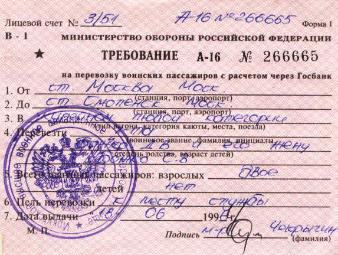 Лицевой счет № 3/51 А-16 № 266665 Форма 1
В - 1 МИНИСТЕРСТВО ОБОРОНЫ РОССИЙСКОЙ ФЕДЕРАЦИИ
ТРЕБОВАНИЕ А-16 № 266665
на перевозку воинских пассажиров с расчетом через Госбанк
1. От ст Москва Моск
(станция, порт, аэропорт)
2. До ст Смоленск Моск
(станция, порт, аэропорт)
3. В любой категории
категория каюты, места, поезда)
4. Перевезти
воинское звание, фамилия, инициалы
и его жену
степень родства, возраст детей)
5. Всего пассажиров: взрослых двое
детей нет
6. Цель перевозки к месту службы
7. Дата выдачи 18. 06 199
М. П. Подпись м-р Чекрыгин
(фамилия)